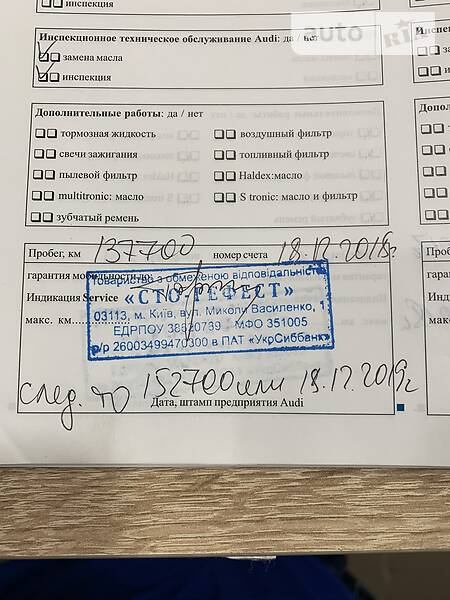 инспекция
auto RIA
Инспекционное техническое обслуживание Audi: да / нет
замена масла
инспекция
Дополнительные работы: да / нет
тормозная жидкость воздушный фильтр
свечи зажигания топливный фильтр
пылевой фильтр Haldex:масло
multitronic: масло S tronic: масло и фильтр
зубчатый ремень
Пробег, км 137700 номер счета 18.12.2018г
гарантия мобильности до:
Товариство з обмеженою відповідальністю
Индикация Service
«СТО РЕФЕСТ»
03113, м. Київ, вул. Миколи Василенко, 1
макс. км
ЕДРПОУ 38820739 МФО 351005
р/р 26003499470300 в ПАТ «УкрСиббанк»
след. ТО 152700 или 18.12.2019г
Дата, штамп предприятия Audi